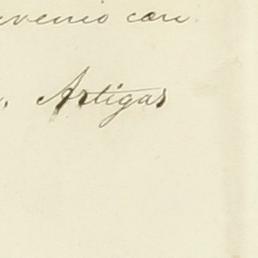 convenio con
Artigas